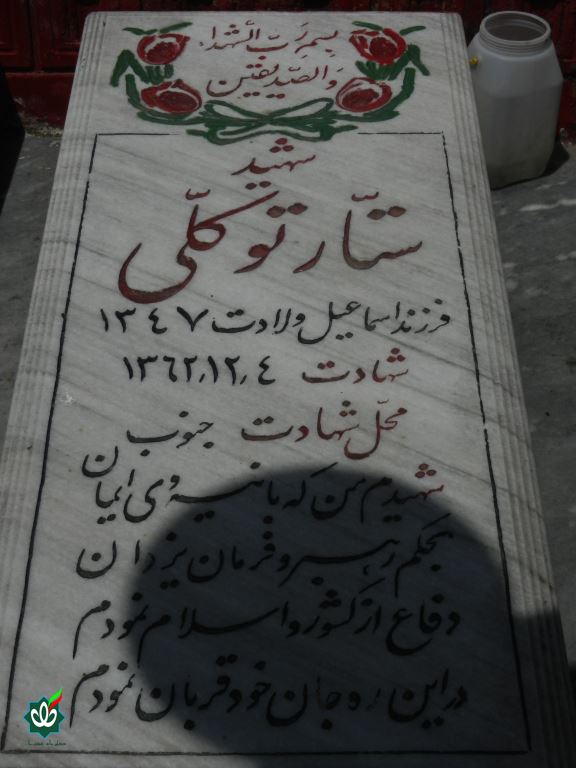 بسم ربّ الشهداء
والصّدیقین
شهید
ستّار توکلّی
فرزند اسماعیل ولادت ۱۳۴۷
شهادت ۱۳۶۲٫۱۲٫۴
محلّ شهادت جنوب
شهیدم من که با نیروی ایمان
بحکم رهبر و فرمان یزدان
دفاع از کشور و اسلام نمودم
در این ره جان خود قربان نمودم